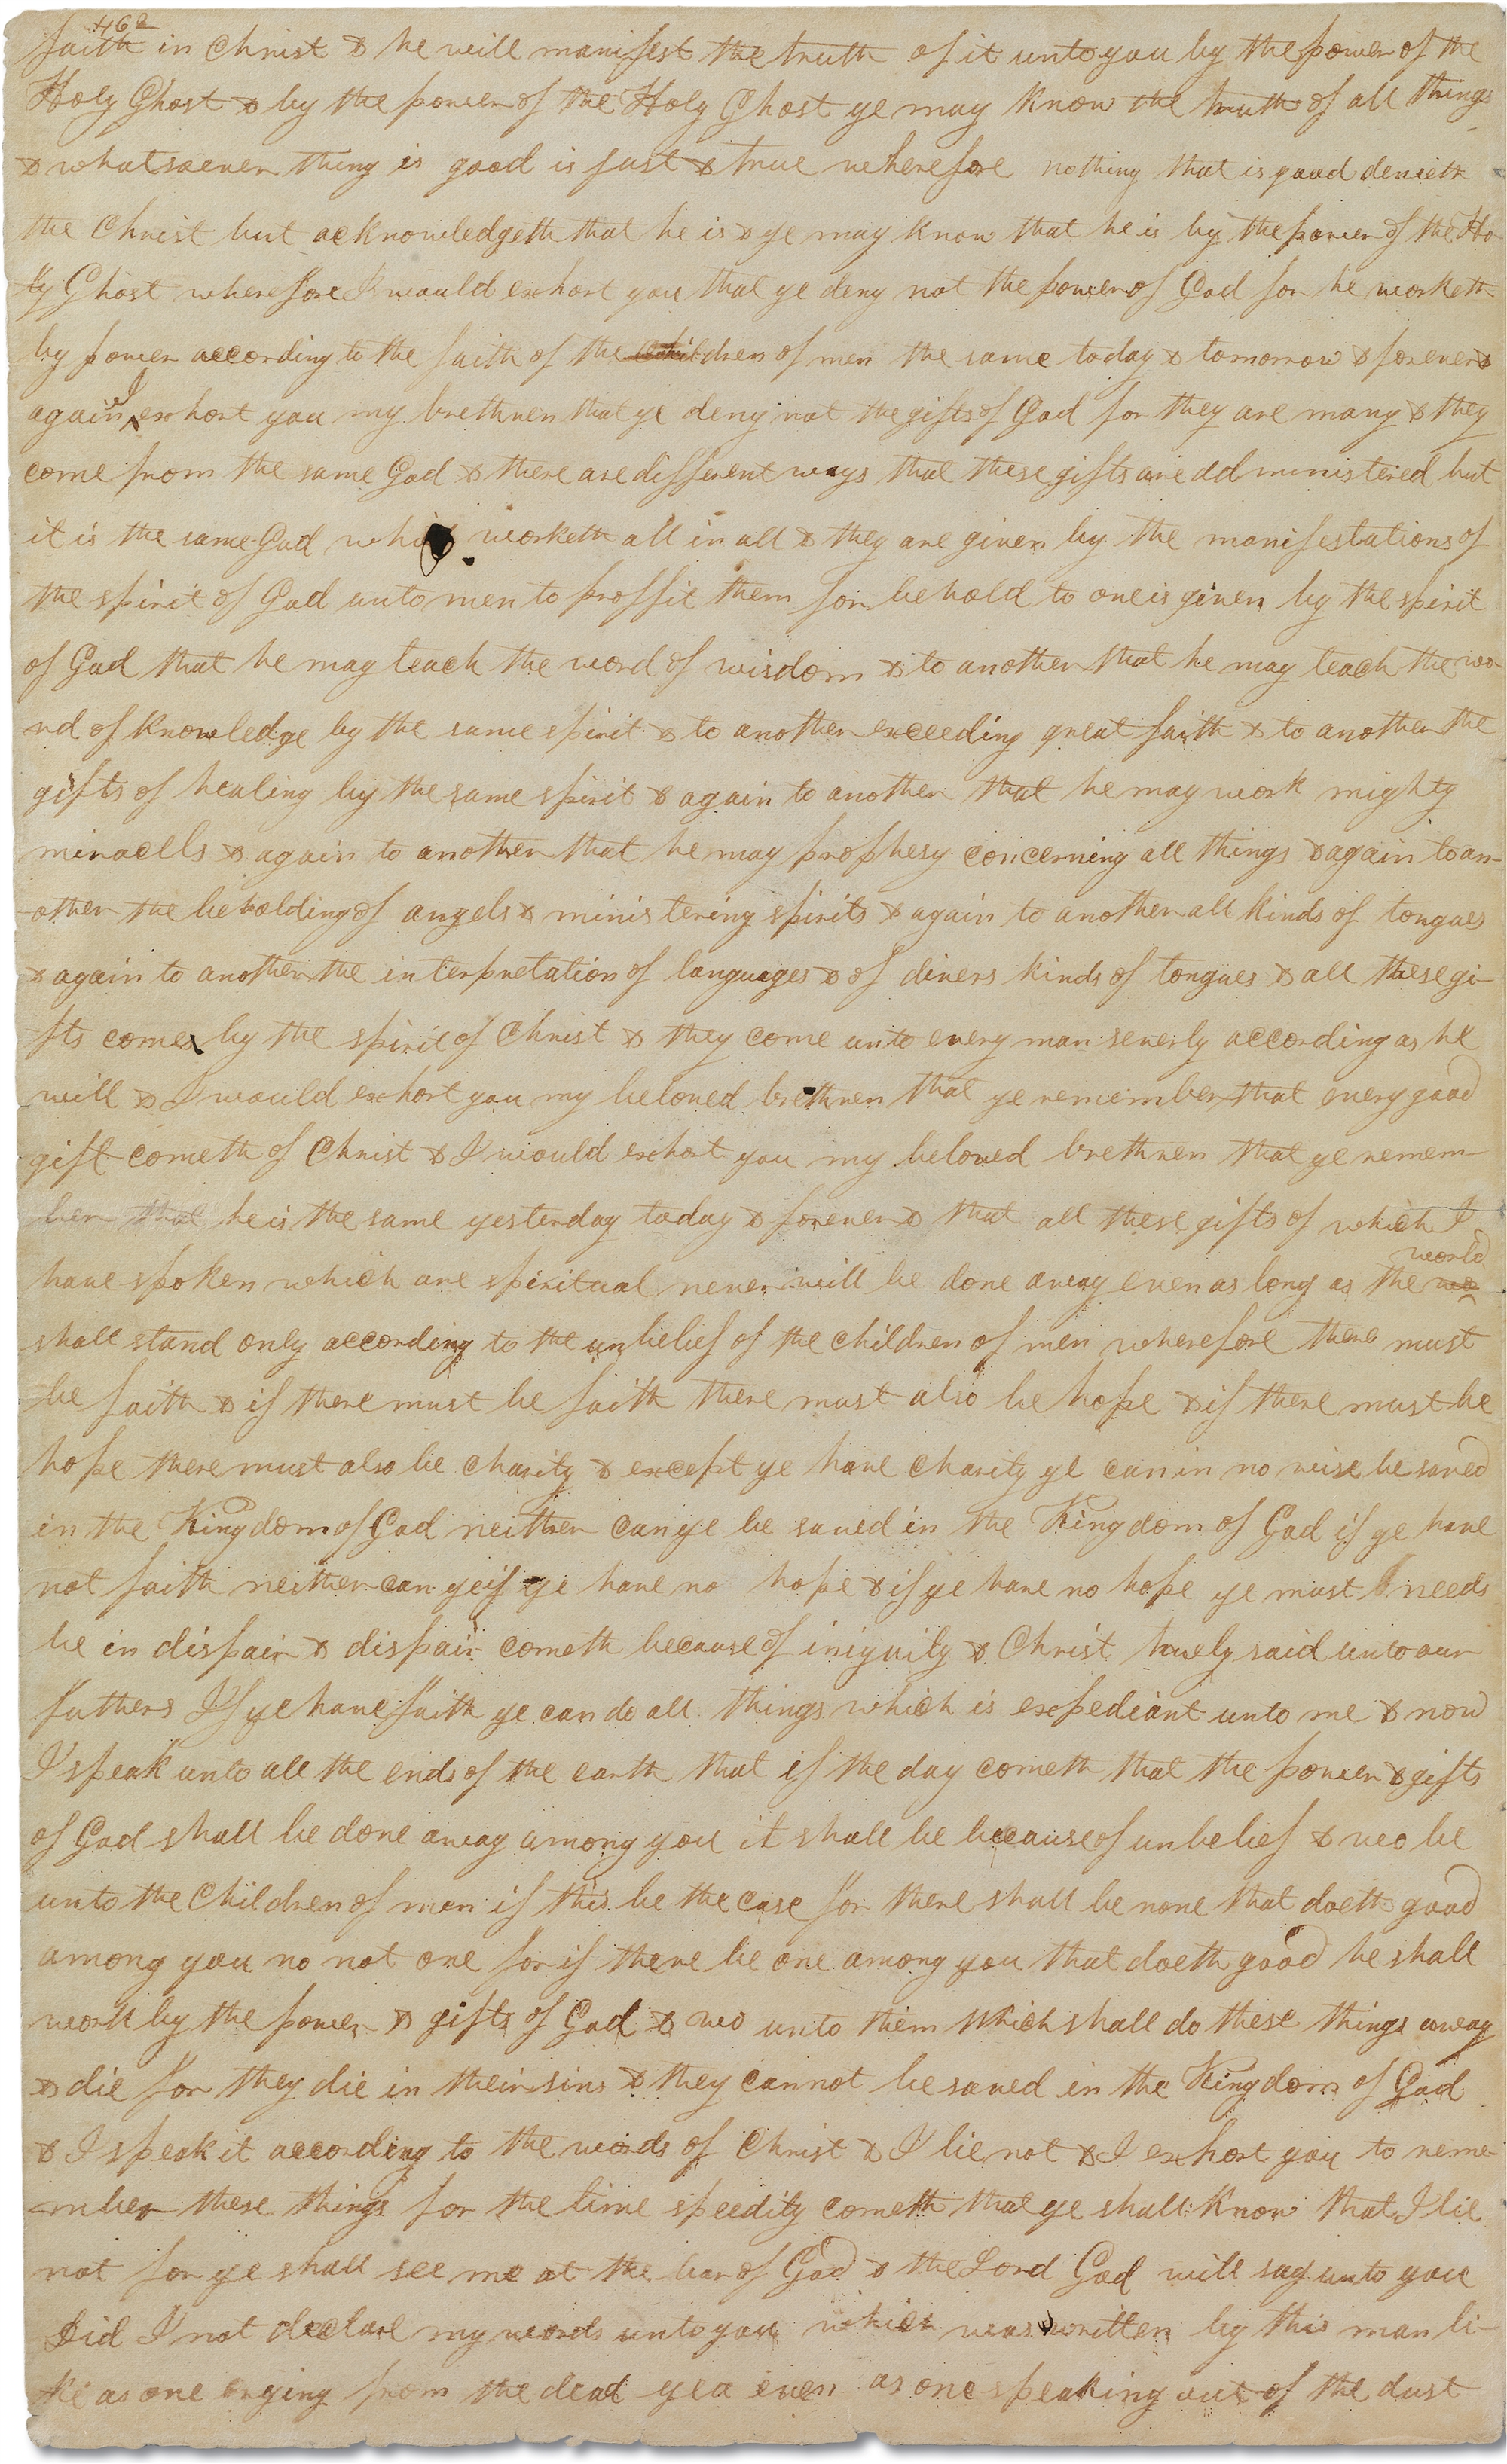 462
faith in Christ & he will manifest the truth of it unto you by the power of the
Holy Ghost & by the power of the Holy Ghost ye may know the truth of all things
& whatsoever thing is good is just & true wherefore nothing that is good denieth
the Christ but acknowledgeth that he is & ye may know that he is by the power of the Ho-
ly Ghost wherefore I would exhort you that ye deny not the power of God for he worketh
by power according to the faith of the children of men the same today & tomorrow & forever &
again I exhort you my brethren that ye deny not the gifts of God for they are many & they
come from the same God & there are different ways that these gifts are administered but
it is the same God which worketh all in all & they are given by the manifestations of
the spirit of God unto men to proffit them for behold to one is given by the spirit
of God that he may teach the word of wisdom & to another that he may teach the wo-
rd of knowledge by the same spirit & to another exceeding great faith & to another the
gifts of healing by the same spirit & again to another that he may work mighty
miracells & again to another that he may prophesy concerning all things & again to an-
other the beholding of angels & ministering spirits & again to another all kinds of tongues
& again to another the interpretation of languages & of divers kinds of tongues & all these gi-
fts come by the spirit of Christ & they come unto every man severly according as he
will & I would exhort you my beloved brethren that ye remember that every good
gift cometh of Christ & I would exhort you my beloved brethren that ye remem-
ber that he is the same yesterday today & forever & that all these gifts of which I
have spoken which are spiritual never will be done away even as long as the wo world
shall stand only according to the unbelief of the children of men wherefore there must
be faith & if there must be faith there must also be hope & if there must be
hope there must also be charity & except ye have charity ye can in no wise be saved
in the Kingdom of God neither can ye be saved in the Kingdom of God if ye have
not faith neither can ye if ye have no hope & if ye have no hope ye must needs
be in dispair & dispair cometh because of iniquity & Christ truely said unto our
fathers If ye have faith ye can do all things which is expediant unto me & now
I speak unto all the ends of the earth that if the day cometh that the power & gifts
of God shall be done away among you it shall be because of unbelief & wo be
unto the Children of men if this be the case for there shall be none that doeth good
among you no not one for if there be one among you that doeth good he shall
work by the power & gifts of God & wo unto them which shall do these things away
& die for they die in their sins & they cannot be saved in the Kingdom of God
& I speak it according to the words of Christ & I lie not & I exhort you to reme-
mber these things for the time speedily cometh that ye shall know that I lie
not for ye shall see me at the bar of God & the Lord God will say unto you
Did I not declare my words unto you which was written by this man li-
ke as one crying from the dead yea even as one speaking out of the dust